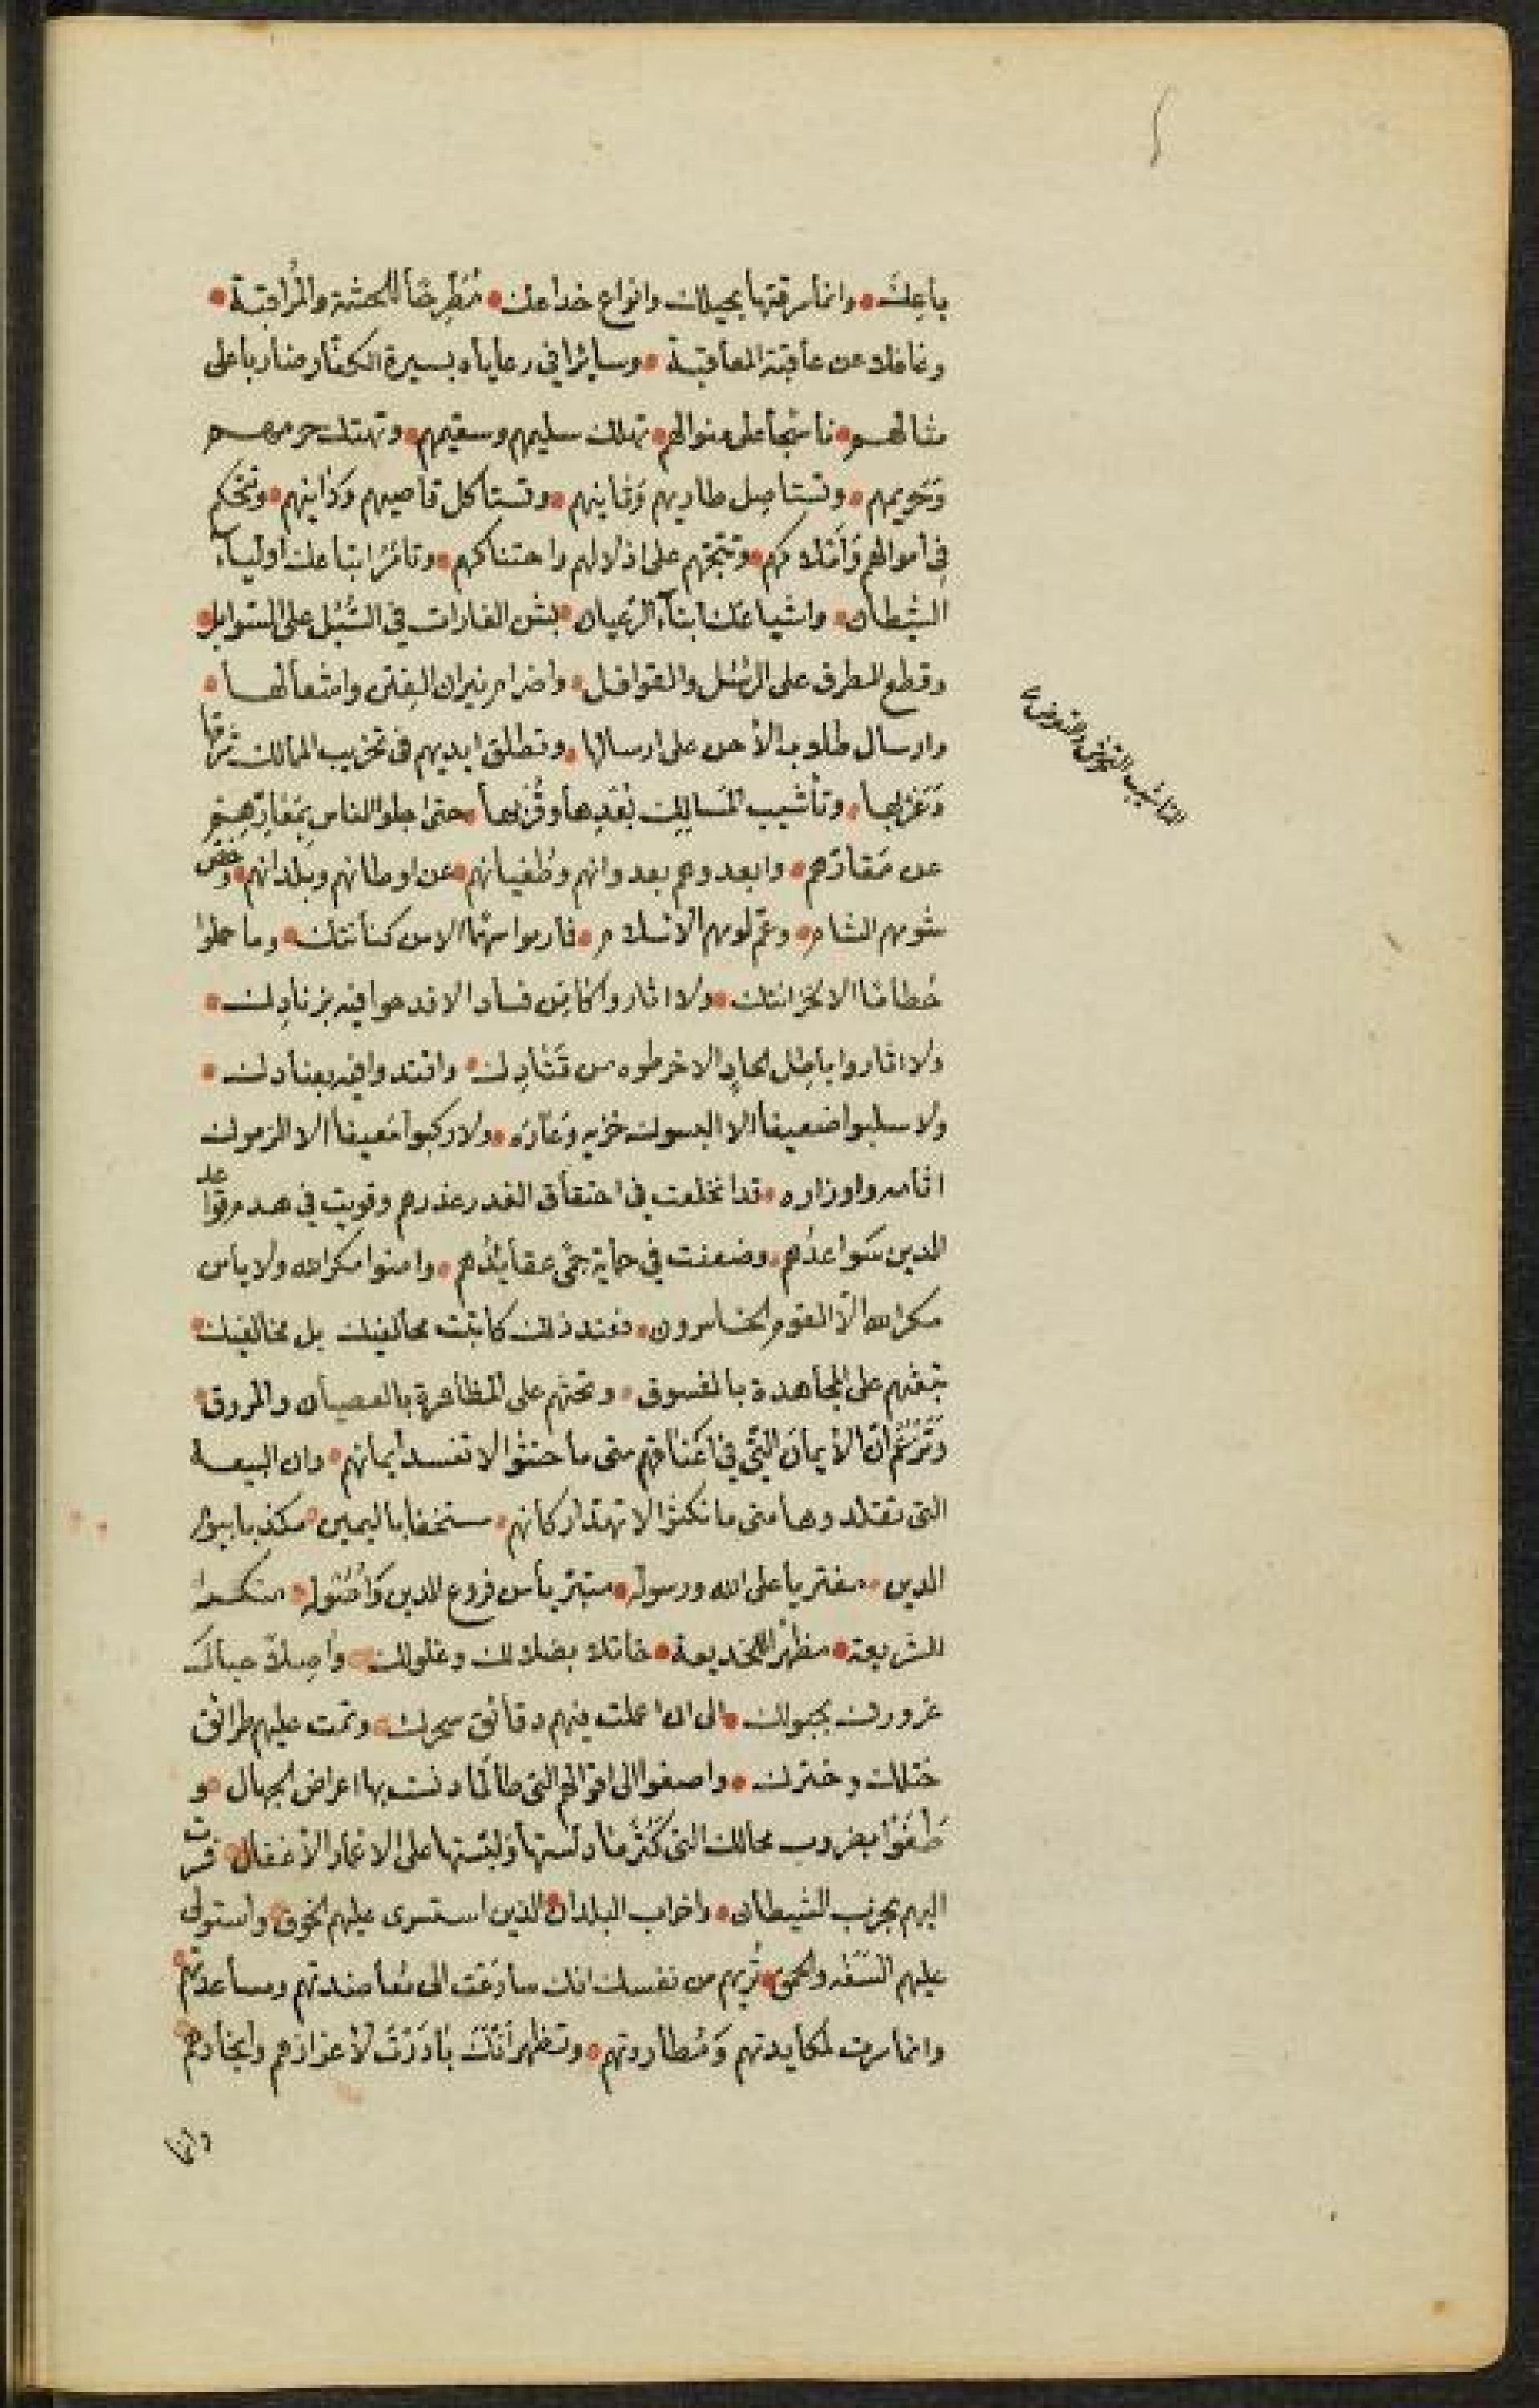 باعك وانما سرقتها بحيلك وانواع خداعك مُطَّرِحًا للحشمة والمُراقبة
وغافلا عن عاقبة المعاقبة وسايرا في رعاياه بسيرة الكفار ضاربا على
مثالهم ناسجا على منوالهم تهلك سليمهم وسقيمهم وتهتك حرمهم
وحريمهم وتستاصل طاريهم وثانيهم وتستاكل قاصيهم ودانيهم وتتحكم
في اموالهم واملاكهم على اذلالهم واحتناكهم اتباعك اولياء
الشيطان واشياعك ابناء بشن الغارات في السُبُل على السوابل
وقطع الطرق على الرسل والقوافل واضرام نيران الفتن واشعالها
وارسال على ارسالها وتطلق ايديهم في تخريب الممالك شرقها
وغربها وتأشيب المسالك بُعْدِها وقُرْبِها حتى اجلوا الناس
عن مقارّهم وابعدوهم بعدوانهم وطغيانهم عن اوطانهم وبلدانهم وخصّ
شومهم الشام وعمّ لومهم الاسلام فارموا سهما الا من كنانتك وما حملوا
حُطاما الا لخزانتك ولا اثاروا كامن فساد الا قدحوا فيه بزنادك
ولا اثاروا باطل الحاد الا خرطوه من قتادك واقتدوا فيه بعنادك
ولا سلبوا ضعيفا الا البسوك خزيه وعاره ولا ركبوا ضعيفا الا الزموك
اثامه واوزاره قد انخلعت في اعتقاق الغدر عذرهم وقويت في هدم قواعد
الدين سواعدهم وضعفت في حماية حمى عقائدهم وامنوا مكر الله ولا يأمن
مكر الله الا القوم الخاسرون فعند ذلك كاتبت محالفيك بل مخالفيك
تبعثهم على المجاهدة بالفسوق وتحثهم على المظاهرة بالعصيان والمروق
وتزعم انّ الأيمان التي في اعناقهم متى ما حنثوا لا تفسد ايمانهم وان البيعة
التي تقلدوها متى ما نكثوا لا تهتد اركانهم مستخفا باليمين مكذبا بيوم
الدين مفتريا على الله ورسوله متبريا من فروع الدين واصوله
للشريعة مظهرا للخديعة خاتلا بضلالك وغلولك واصلا حبالك
غرورك بحبولك الى ان اعملت فيهم دقائق سحرك وتمت عليهم طرائق
ختلك وخترك واصغوا الى اقوالهم التي طالما دنست بها اعراض الجهال و
ضروب محالك التي كثر ما دلستها ولبستها على الاغمار الأغفال فسرت
اليهم بحزب الشيطان واخراب البلدان الذين استسرى عليهم الخوف واستولى
عليهم السفه والحمق تُريهم من نفسك انك سارعت الى معاضدتهم ومساعدتهم
وانما سرت لمكايدتهم ومطاردتهم وتظهر انّك بادَرْت لاعزازهم وانجادهم
وانما